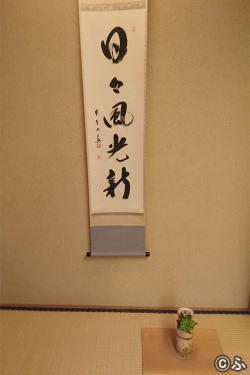 日々風光新
©ふ